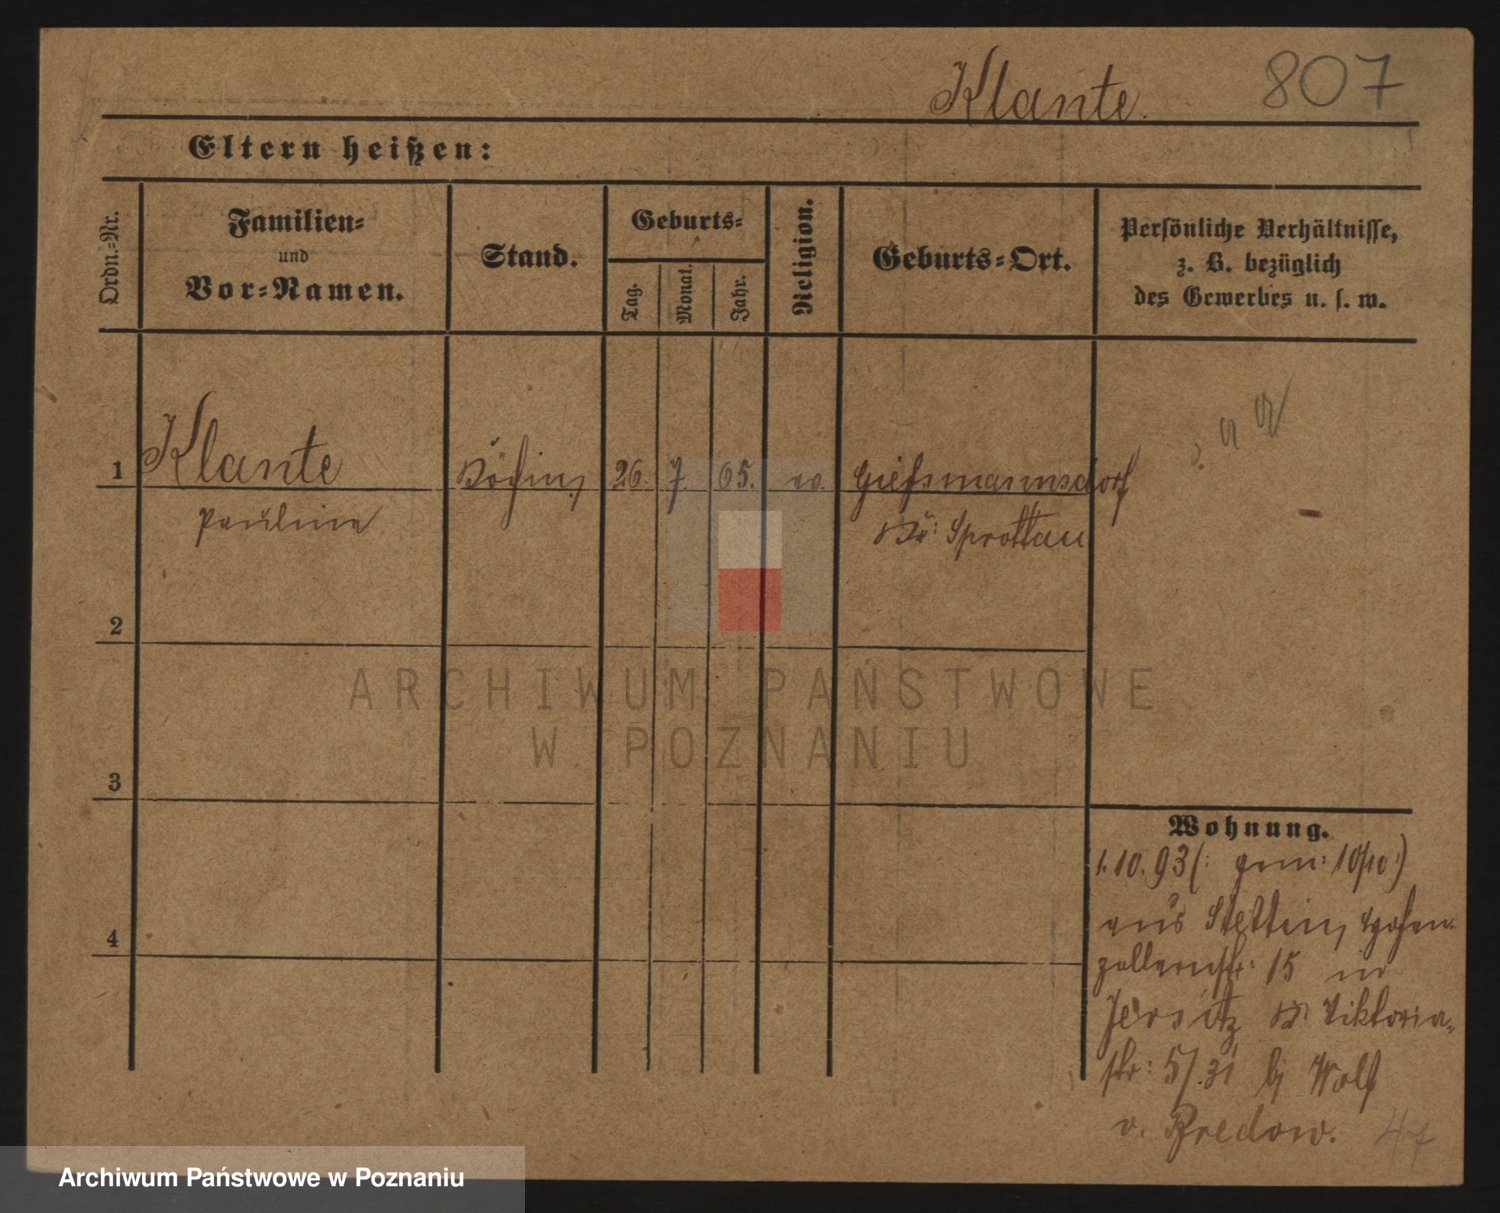 Klante. 807
Eltern heißen:
Ordn.-Nr.
Familien-
und
Vor-Namen.
Stand.
Geburts-
Tag.
Monat.
Jahr.
Religion.
Geburts-Ort.
Persönliche Verhältnisse,
z. B. bezüglich
des Gewerbes u. s. w.
1 Klante Köchin 26. 7. 65. ev. Gießmannsdorf
Pauline Kr: Sprottau
2
3
4
ARCHIWUM PAŃSTWOWE
W POZNANIU
Wohnung.
1.10.93 (: gem: 10/10:)
aus Stettin, Hohen-
zollernstr: 15 in
Jersitz Viktoria-
str: 5/31 bj Wolf
v. Bredow. 47
Archiwum Państwowe w Poznaniu